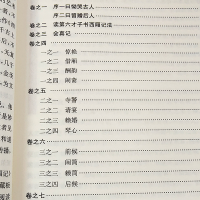 卷之一 序一曰恸哭古人
序二曰留赠后人
卷之二 读第六才子书西厢记法
卷之三 会真记
卷之四
一之一 惊艳
一之二 借厢
一之三 酬韵
一之四 闹斋
卷之五
二之一 寺警
二之二 请宴
二之三 赖婚
二之四 琴心
卷之六
三之一 前候
三之二 闹简
三之三 赖简
三之四 后候
卷之七